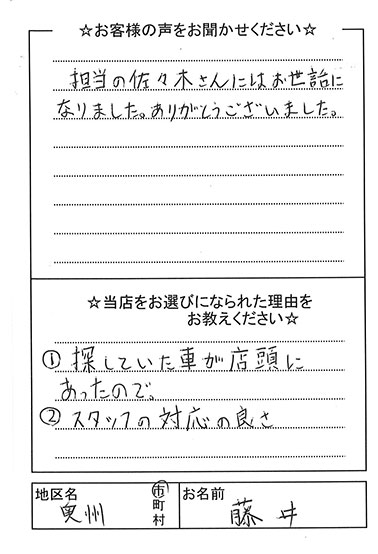 ☆お客様の声をお聞かせください☆
担当の佐々木さんにはお世話に
なりました。ありがとうございました。
☆当店をお選びになられた理由を
お教えください☆
① 探していた車が店頭に
あったので。
② スタッフの対応の良さ
地区名
奥州
市
町
村
お名前
藤井